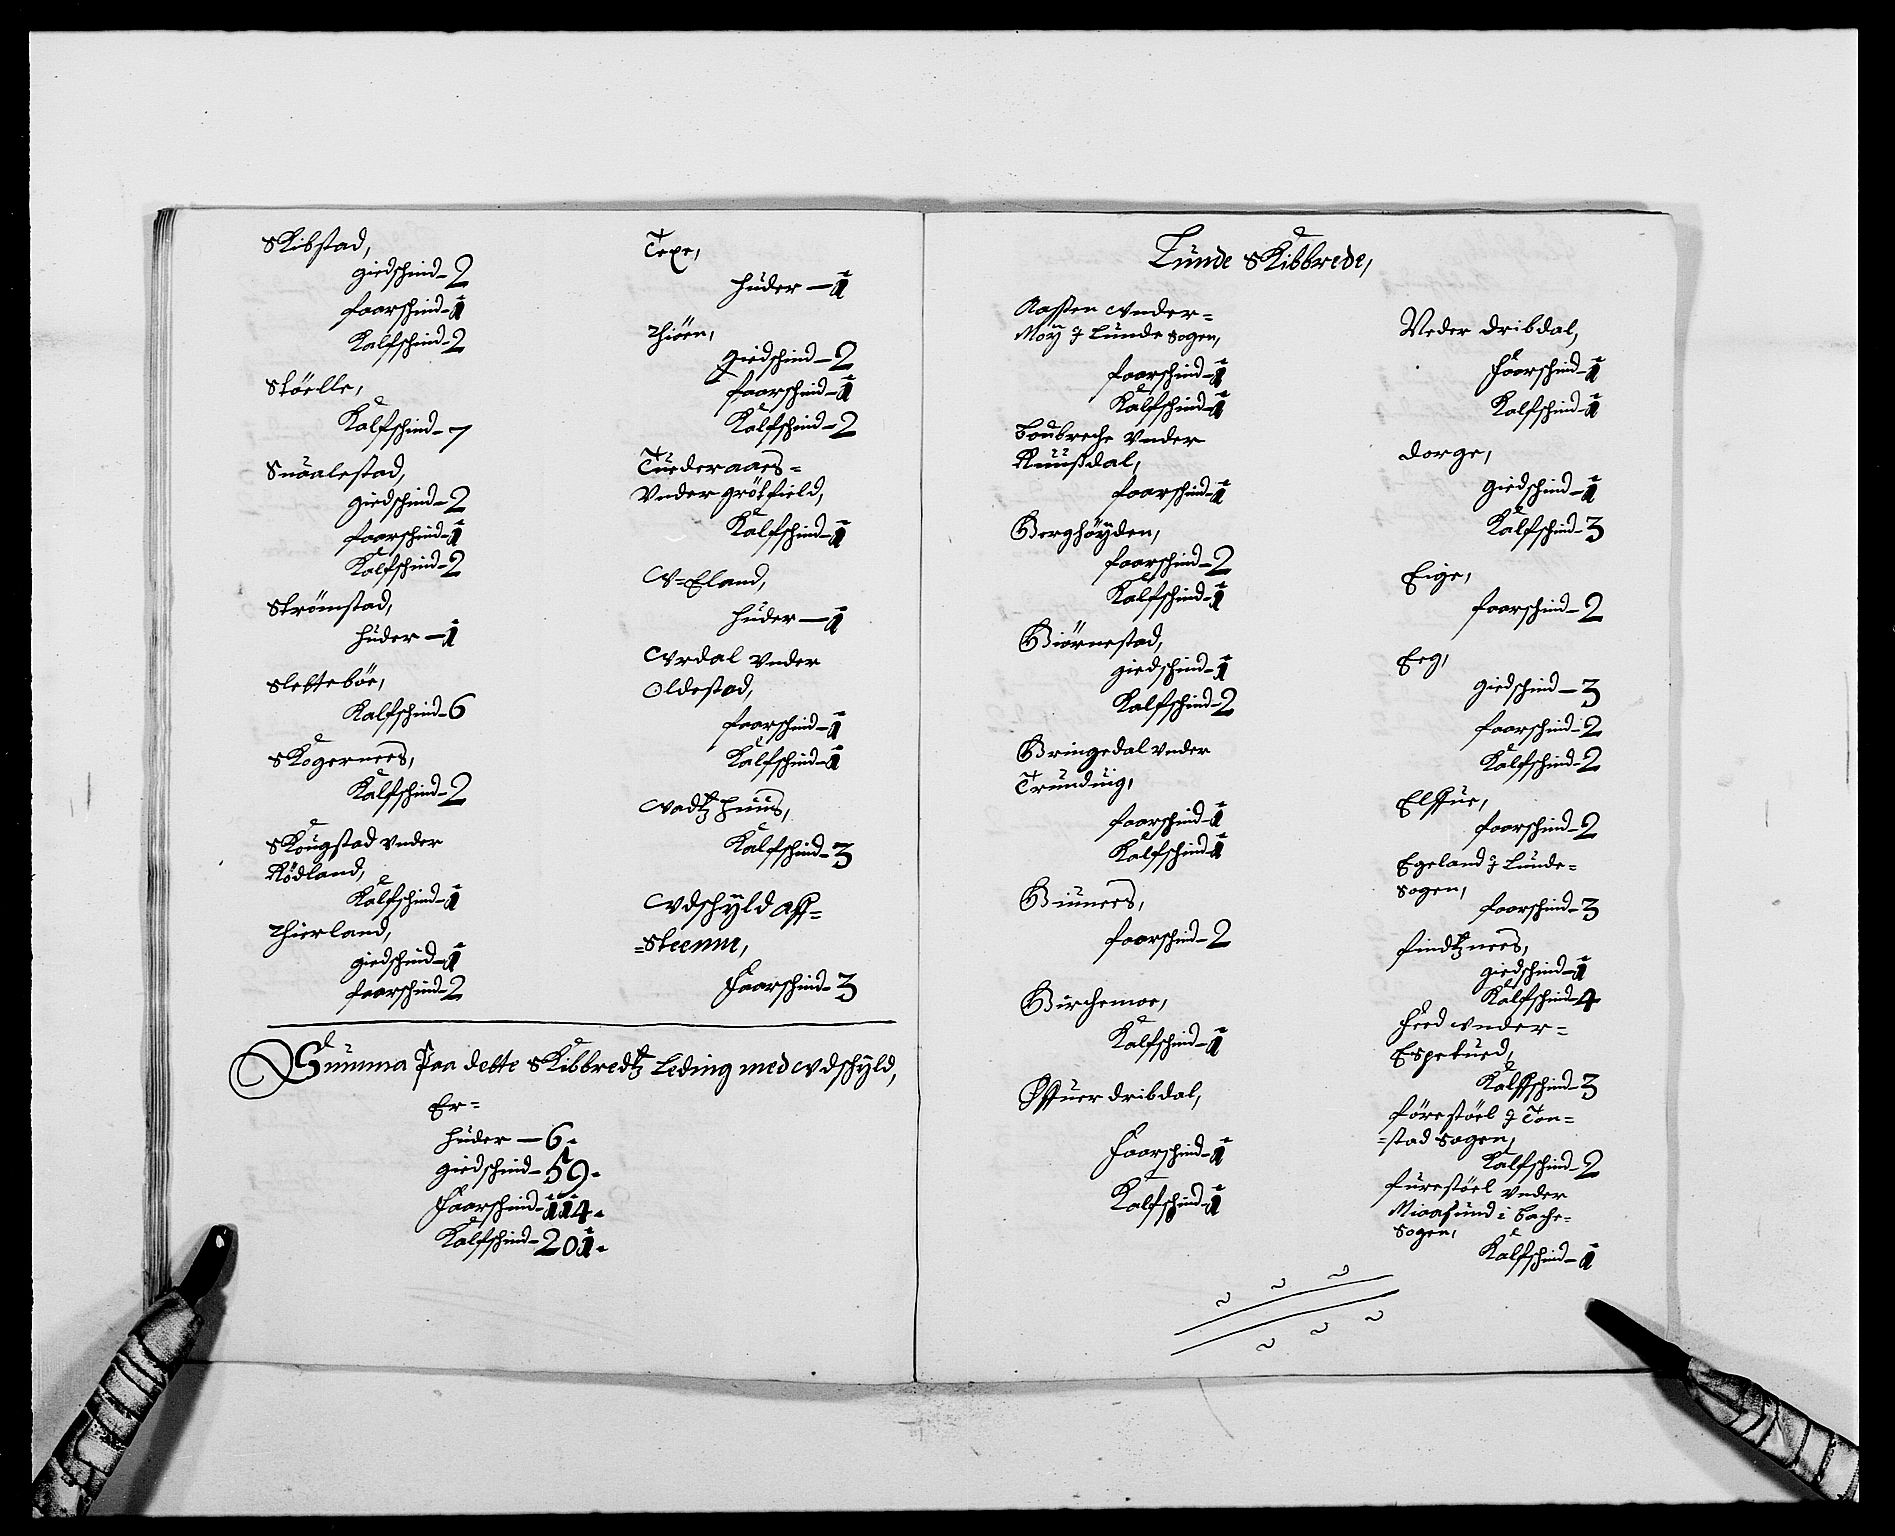 Skibstad,
giedschind - 2
faarschind - 1
Kalfschind - 2
Stöelle,
Kalfschind - 7
Snaalestad,
giedschind - 2
faarschind - 1
Kalfschind - 2
Strömstad,
huder - 1
Sletteböe,
Kalfschind - 6
Skogernees,
Kalfschind - 2
Skougstad vnder
Rödland,
Kalfschind - 1
Thierland,
giedschind - 1
faarschind - 2
Texe,
huder - 1
Thiöen,
giedschind - 2
faarschind - 1
Kalfschind - 2
Tuederaaes=
Vnder grötfield,
Kalfschind - 1
W=Eland,
huder - 1
Wrdal vnder
Oldestad,
faarschind - 1
Kalfschind - 1
Wadtzhuus,
Kalfschind - 3
Wdschyld aff=
=Steenm,
Faarschind - 3
Summa Paa dette Skibbredtz Leding med wdschyld,
Er=
huder - 6.
giedschind - 59.
Faarschind - 114.
Kalfschind - 201.
Lunde Skibbrede,
Aassen wnder=
Moy J Lunde sogen,
faarschind - 1
Kalfschind - 1
Boubreche vnder
Ruusdal,
faarschind - 1
Berghöyden,
faarschind - 2
Kalfschind - 1
Biörnestad,
giedschind - 1
Kalfschind - 2
Bringedal vnder
Trunduig,
faarschind - 1
Kalfschind - 1
Biunees,
faarschind - 2
Birchemoe,
Kalfschind - 1
Öffuer dribdal,
Faarschind - 1
Kalfschind - 1
Neder dribdal,
Faarschind - 1
Kalfschind - 1
Dorge,
giedschind - 1
Kalfschind - 3
Eige,
faarschind - 2
Eeg,
giedschind - 3
faarschind - 2
Kalfschind - 2
Elffue,
faarschind - 2
Egeland J Lunde=
sogen,
faarschind - 3
findtznees,
giedschind - 1
Kalfschind - 4
Feed wnder=
Espetued,
Kalffschind - 3
förestöel J Ton=
=stad sogen,
Kalfschind - 2
furestöel vnder
Miaasund i Bache=
sogen,
Kalfschind - 1